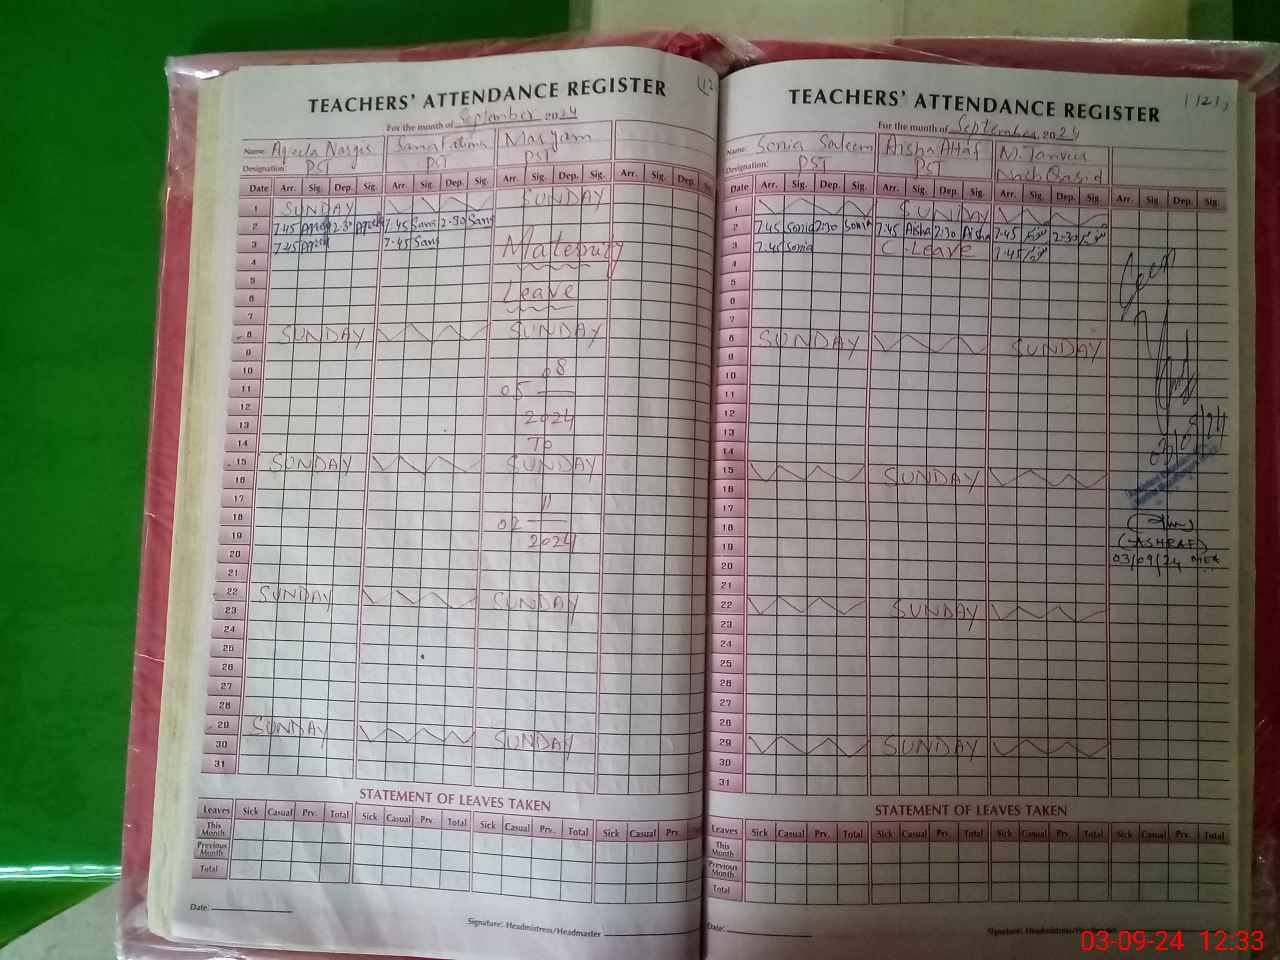 TEACHERS' ATTENDANCE REGISTER
For the month of September 2024
Name: Aqeela Nargis Sana Fatima Maryam
Designation: PST PST PST
Date Arr. Sig. Dep. Sig. Arr. Sig. Dep. Sig. Arr. Sig. Dep. Sig. Arr. Sig. Dep. Sig.
1 SUNDAY SUNDAY
2 7.45 2.30 7.45 Sana 2.30 Sana
3 7.45 7.45 Sana Maternity
4
5
6 Leave
7
8 SUNDAY SUNDAY
9
10 08
11 05
12 2024
13
14 To
15 SUNDAY SUNDAY
16
17 11
18 02
19 2024
20
21
22 SUNDAY SUNDAY
23
24
25
26
27
28
29 SUNDAY SUNDAY
30
31
STATEMENT OF LEAVES TAKEN
Leaves Sick Casual Prv. Total Sick Casual Prv. Total Sick Casual Prv. Total Sick Casual Prv.
This Month
Previous Month
Total
Date:
Signature: Headmistress/Headmaster
TEACHERS' ATTENDANCE REGISTER
121
For the month of September 2024
Name: Sonia Saleem Aisha Altaf M. Tanveer
Designation: PST PST Naib Qasid
Date Arr. Sig. Dep. Sig. Arr. Sig. Dep. Sig. Arr. Sig. Dep. Sig. Arr. Sig. Dep. Sig.
1 SUNDAY
2 7.45 Sonia 2:30 Sonia 7.45 Aisha 2:30 Aisha 7.45 2.30
3 7.45 Sonia C-Leave 7.45
4 Seen
5
6
7
8 SUNDAY SUNDAY
9
10
11
12
13
14 03/09/24
15 SUNDAY
16
17
18
19 (ASHRAF)
20 03/09/24 MEA
21
22 SUNDAY
23
24
25
26
27
28
29 SUNDAY
30
31
STATEMENT OF LEAVES TAKEN
Leaves Sick Casual Prv. Total Sick Casual Prv. Total Sick Casual Prv. Total Sick Casual Prv. Total
This Month
Previous Month
Total
Date:
Signature: Headmistress/
03-09-24 12:33